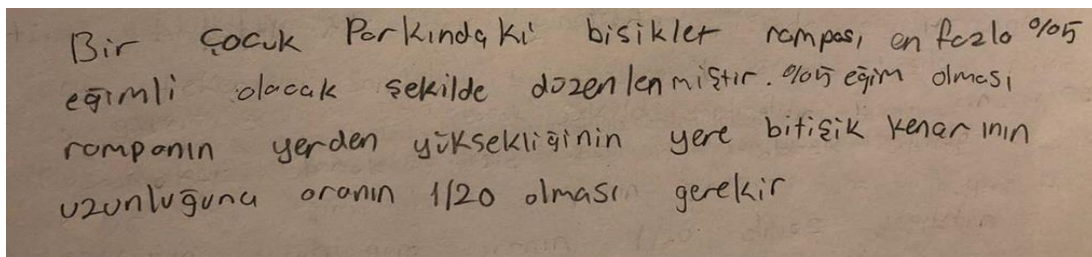 Bir çocuk Parkındaki bisiklet rampası, en fazla %5
eğimli olacak şekilde düzenlenmiştir. %5 eğim olması
rampanın yerden yüksekliğinin yere bitişik kenarının
uzunluğuna oranın 1/20 olması gerekir